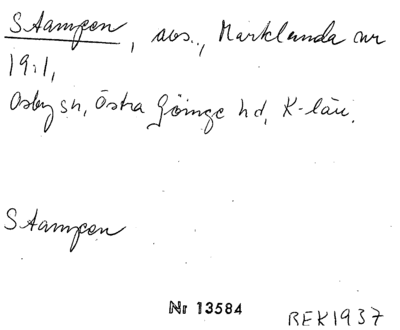 Stampen, avs., Marklunda nr
19:1,
Osby sn, Östra Göinge hd, K-län.
Stampen
Nr 13584
BEK1937